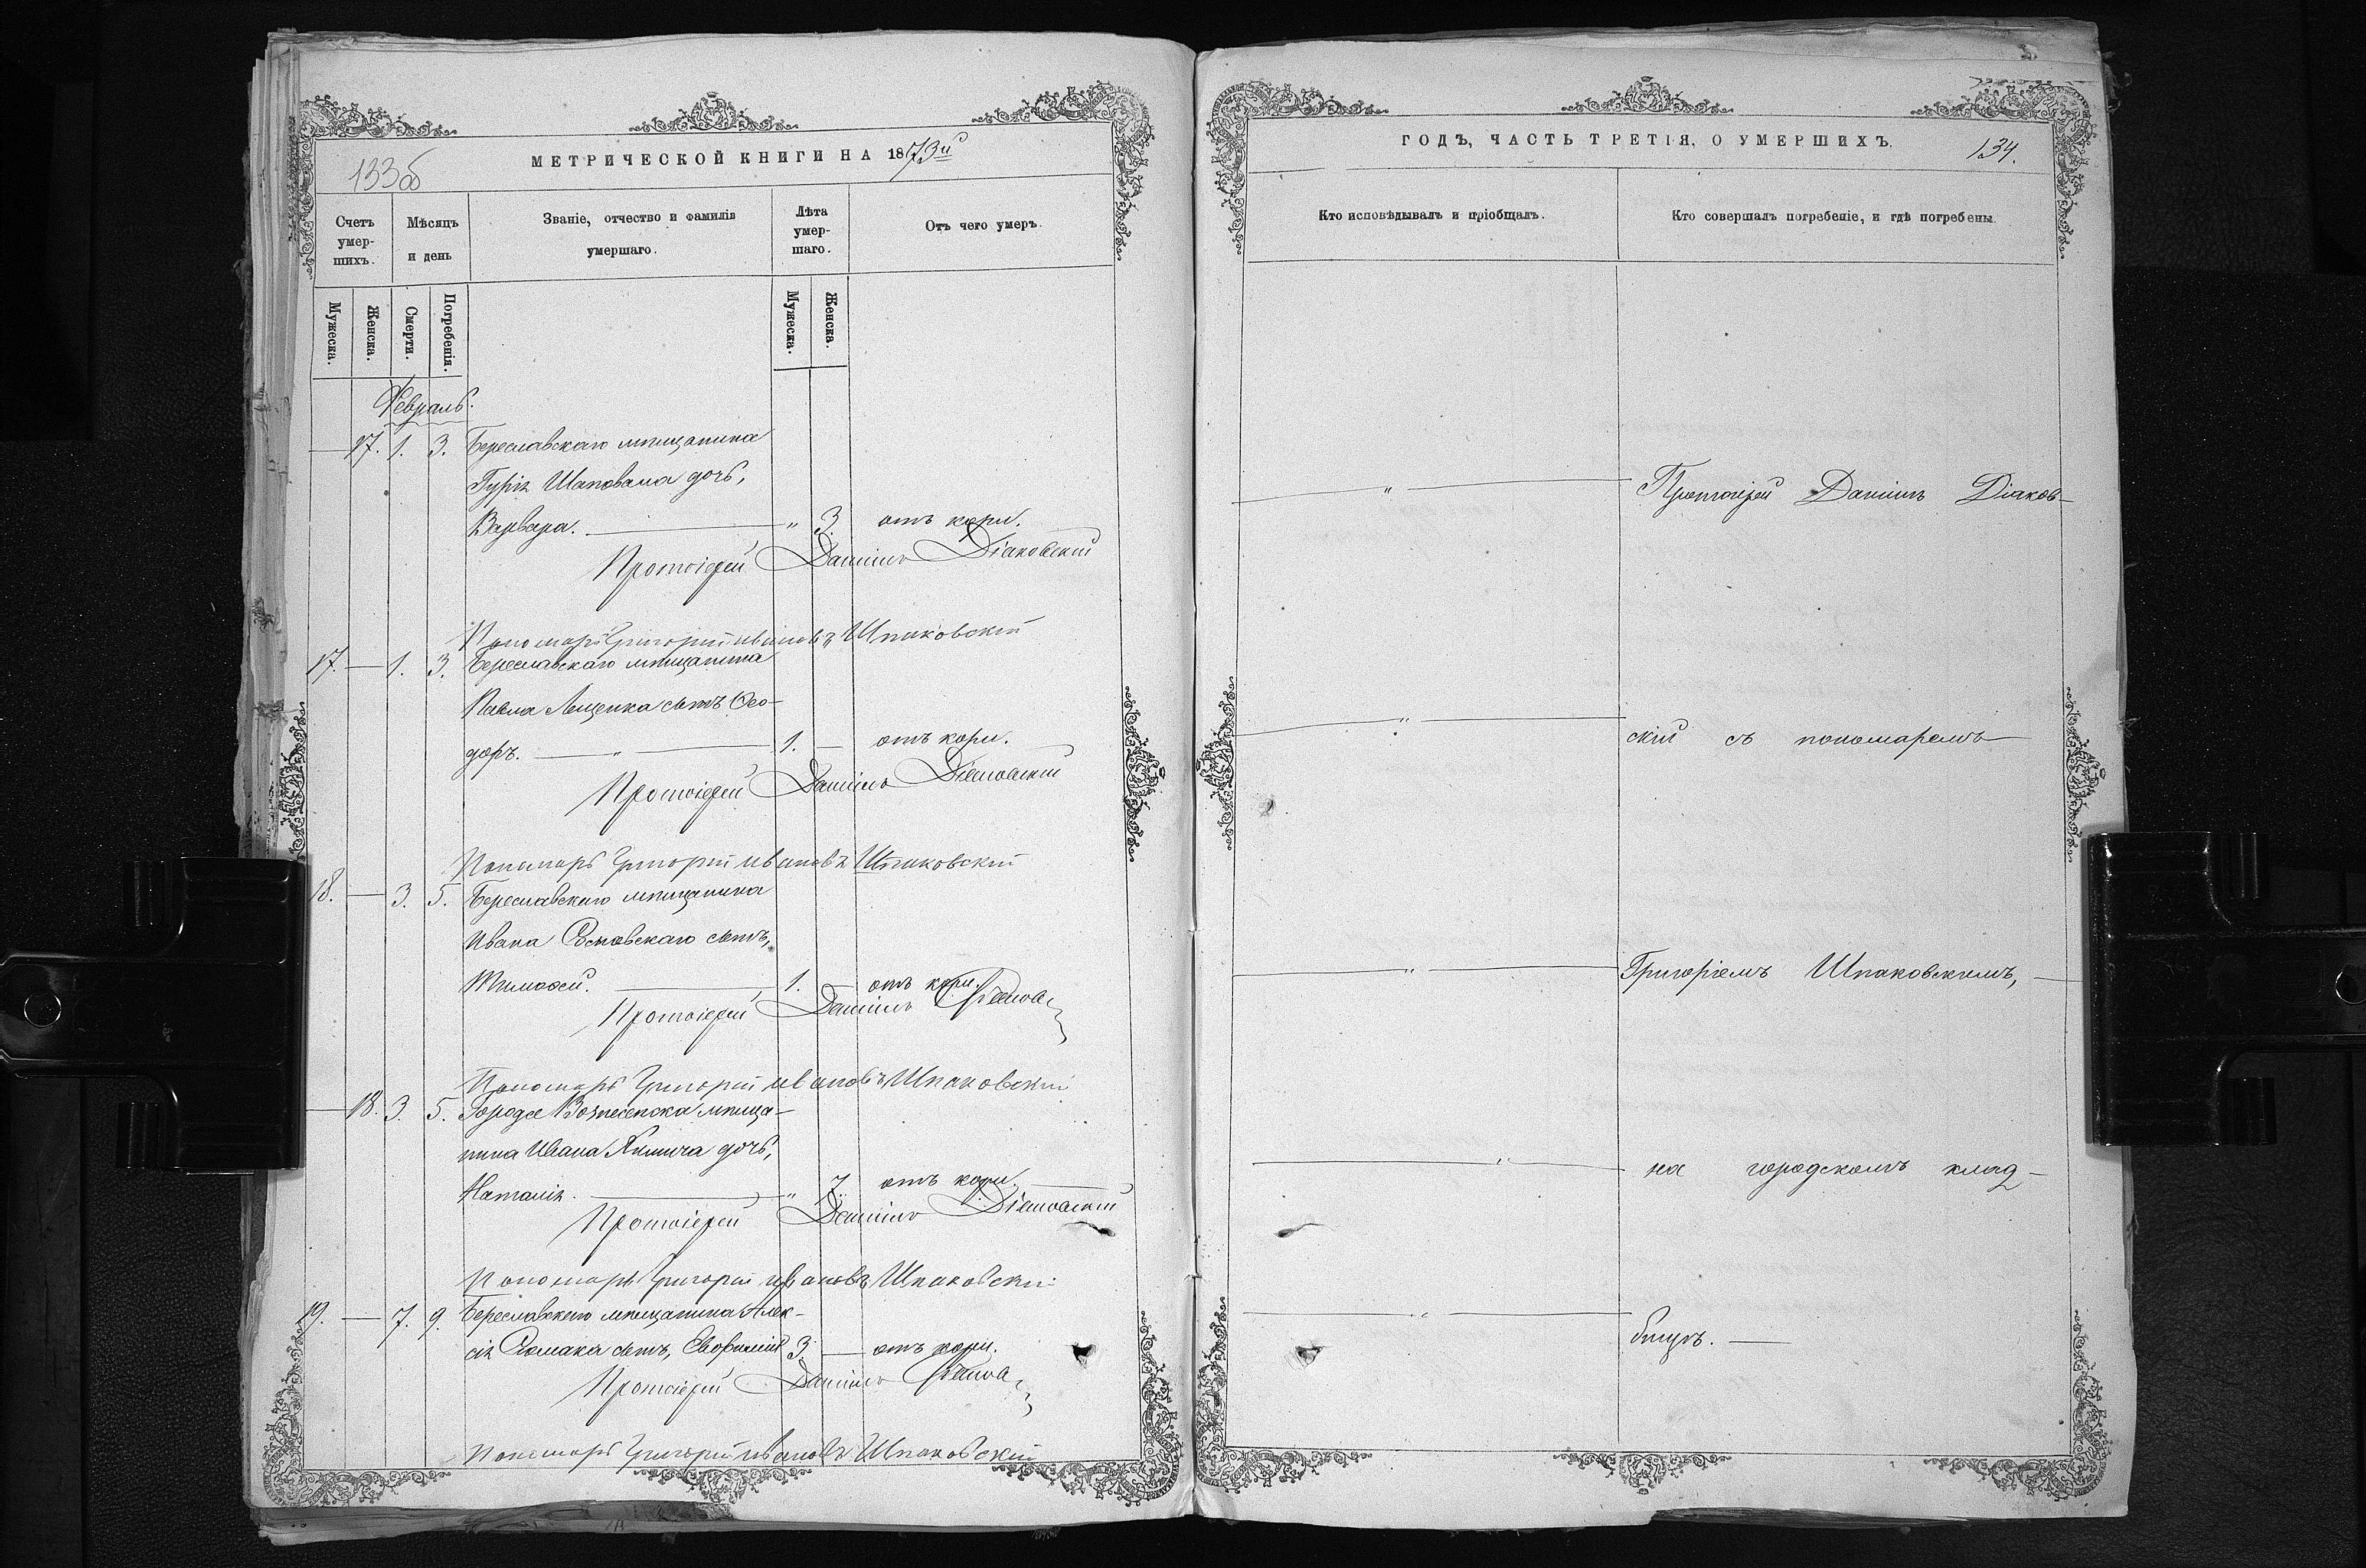 133об
МЕТРИЧЕСКОЙ КНИГИ НА 1873й
Счетъ умер-шихъ.
Мѣсяцъ и день
Званіе, отчество и фамилія умершаго.
Лѣта умер-шаго.
Отъ чего умеръ.
Мужеска.
Женска.
Смерти.
Погребенія.
Мужеска.
Женска.
Февраль.
— 17. 1. 3. Береславскаго мѣщанина
Гурія Шаповала дочь,
Варвара. — " 3. отъ кори.
Протоіерей Даніилъ Діаковскій
Пономарь Григорій Ивановъ Шпаковскій
17. — 1. 3. Береславскаго мѣщанина
Павла Лещенка сынъ Ѳео-
доръ. — " — 1. — отъ кори.
Протоіерей Даніилъ Діаковскій
Пономарь Григорій Ивановъ Шпаковскій
18. — 3. 5. Береславскаго мѣщанина
Ивана сынъ,
Тимоѳей. — 1. — отъ кори.
Протоіерей Даніилъ
Пономарь Григорій Ивановъ Шпаковскій
— 18. 3. 5. Города Вознесенска мѣща-
нина Ивана дочь,
Наталія. — " 7. отъ кори.
Протоіерей Даніилъ Діаковскій
Пономарь Григорій Ивановъ Шпаковскій
19. — 7. 9. Береславскаго мѣщанина Алек-
сія сынъ, Евфимій 3. — отъ кори.
Протоіерей Даніилъ
Пономарь Григорій Ивановъ Шпаковскій
ГОДЪ, ЧАСТЬ ТРЕТІЯ, О УМЕРШИХЪ.
134.
Кто исповѣдывалъ и пріобщалъ.
Кто совершалъ погребеніе, и гдѣ погребены.
— " — Протоіерей Даніилъ Діаков-
— " — скій съ пономаремъ
— " — Григоріемъ Шпаковскимъ,
— " — на городскомъ клад-
— " — бищѣ. —